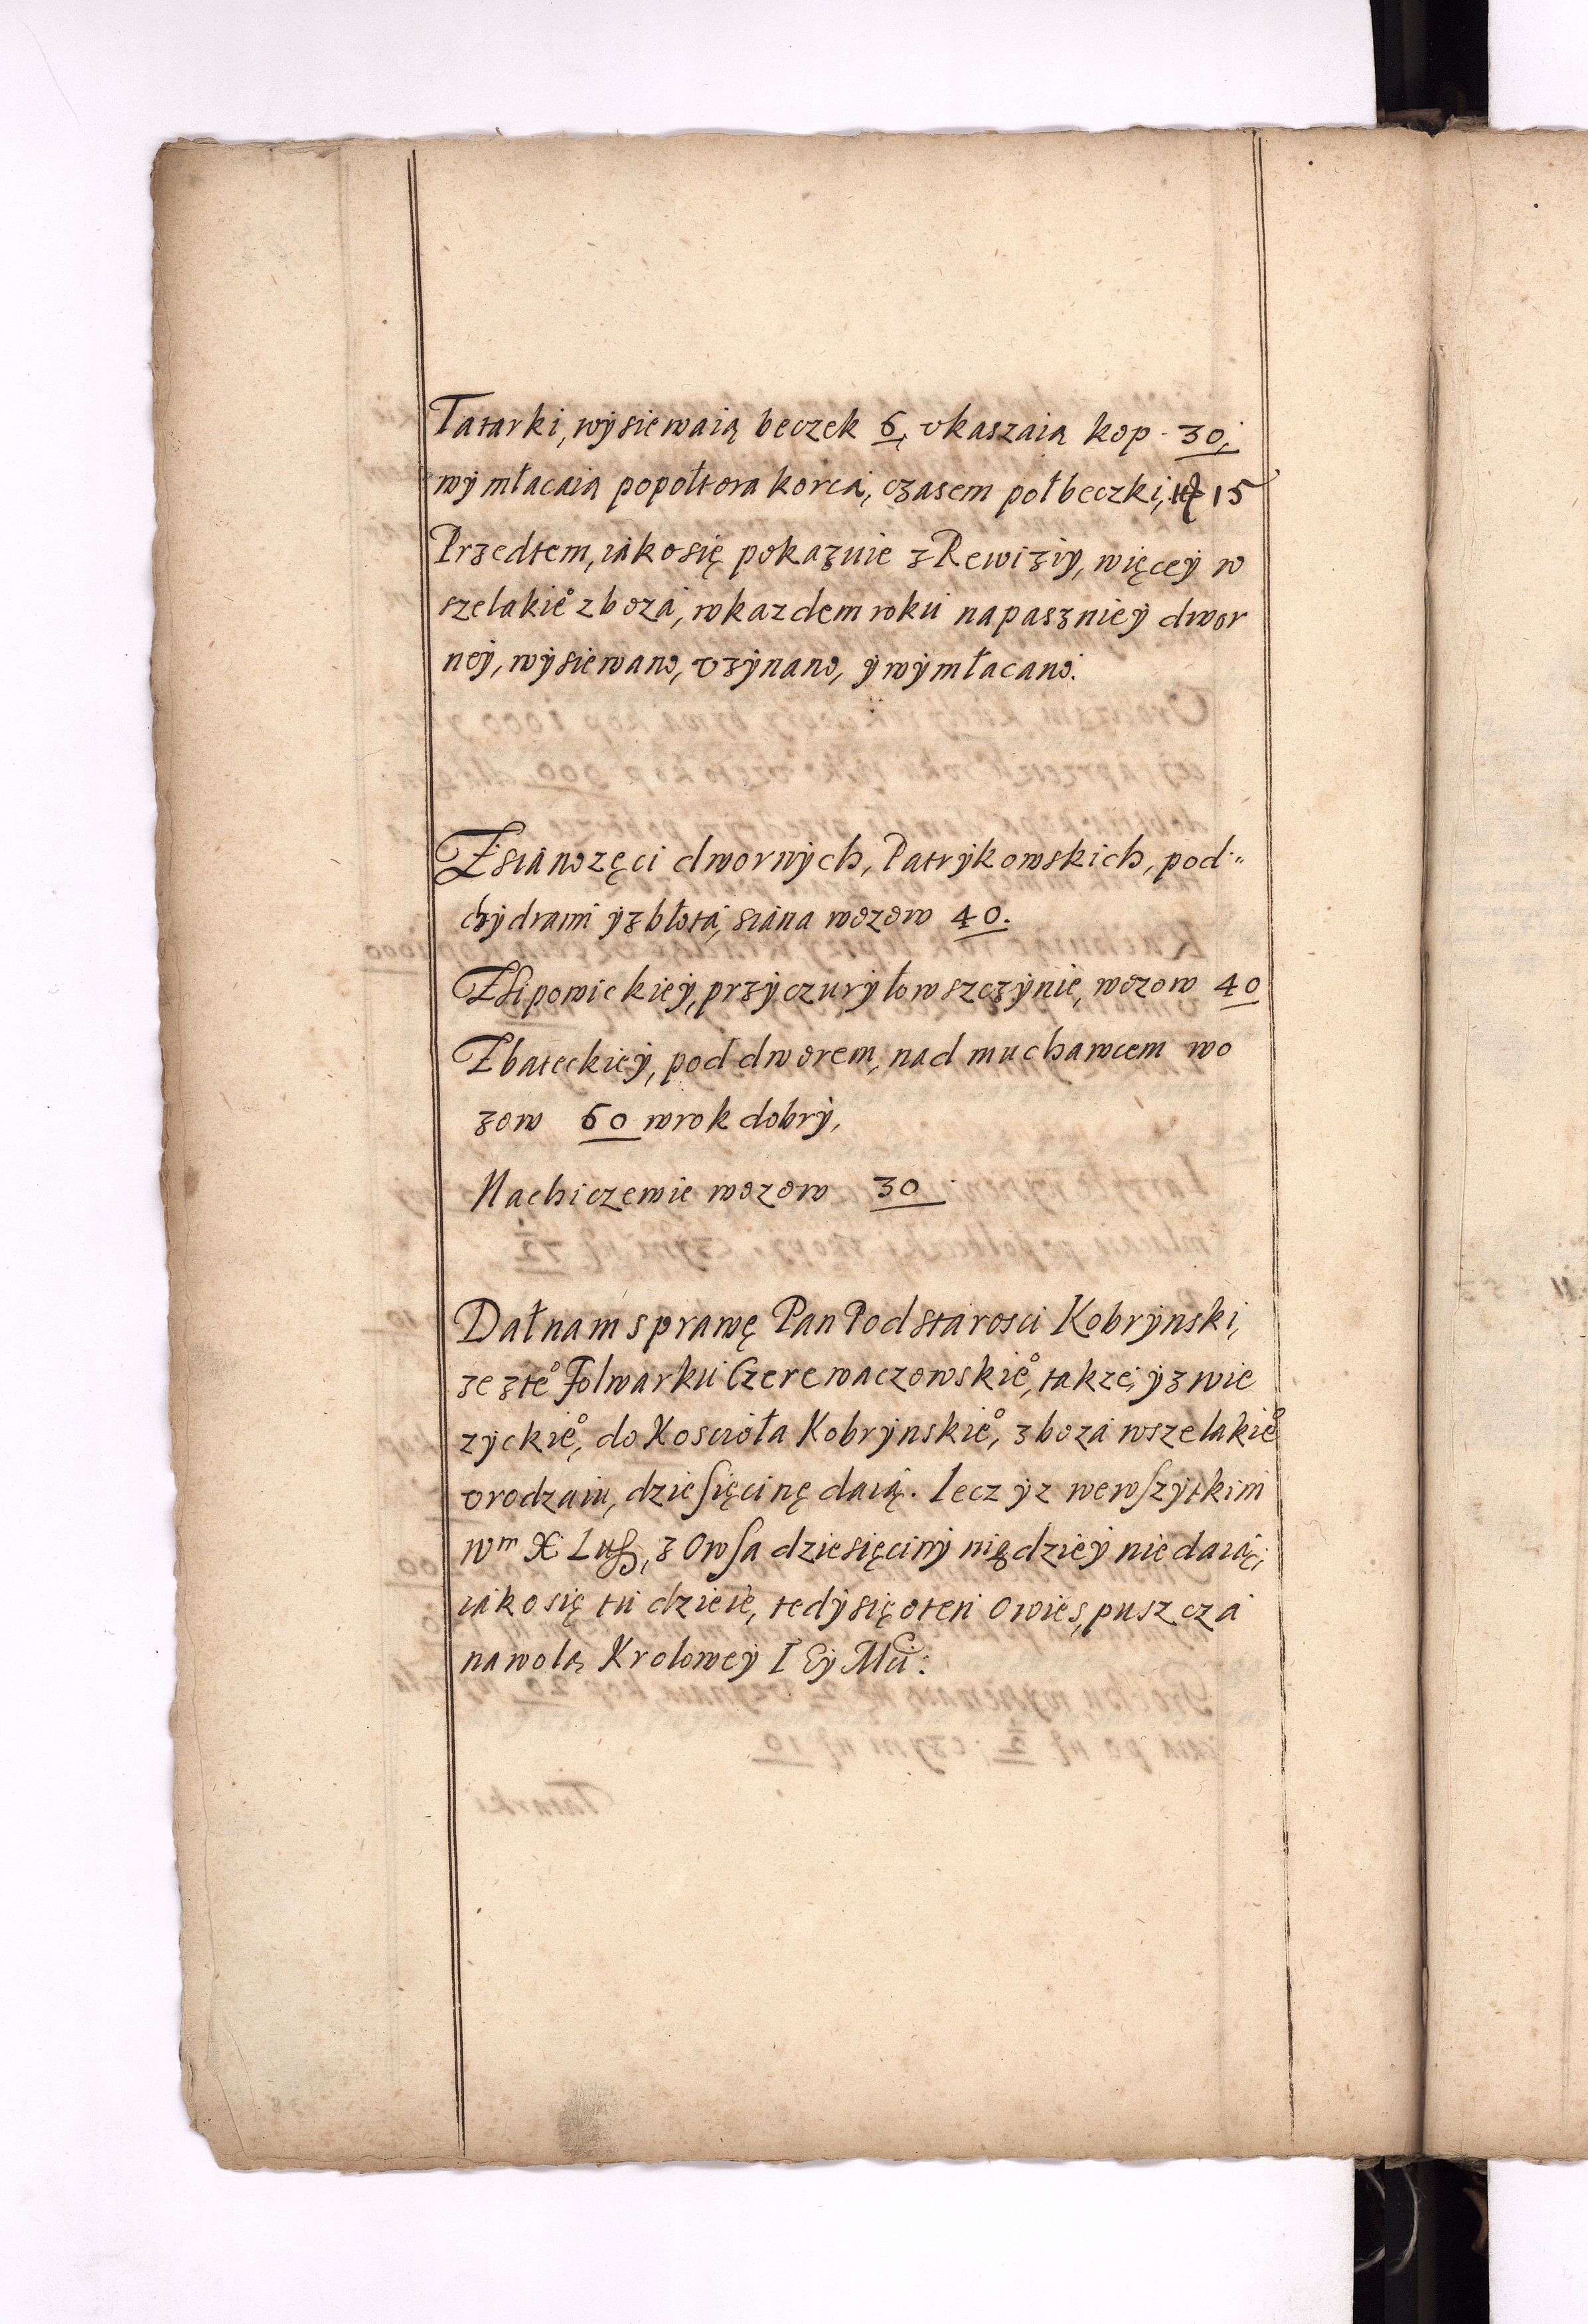 Tatarki, wysiewaią beczek 6, vkaszaią kop. 30,
wymłacaią popołtora korca, czasem poł beczki, 15
Przedtem, iako się pokazuie z Rewiziy, więcey w
szelakie° zboża, w kazdem roku na paszniey dwor
ney, wysiewano, vzynano, y wymłacano.
Z sianozęci dwornych, Patrykowskich, pod„
chydrami y z błota, siana wozow 40.
Z Lipowickiey, przy czuryłowszczynie, wozow 40
Z bateckiey, pod dworem, nad muchawcem wo
zow 60 w rok dobry,
Na chiczewie wozow 30
Dał nam sprawę Pan Podstarosci Kobrynski,
ze z te° Folwarku Czerewaczowskie°, takze, y z wie
zyckie°, do Kościoła Kobrynskie°, zboza wszelakie°
vrodzaiu, dziesięcinę daią. Lecz yz wewszytkim
Wm X Lit, z Owsa dziesięciny nigdziey nie daią,
iako się tu dzieie, tedy się o ten Owies, puszcza
na wolą Krolowey I Ey Mci: